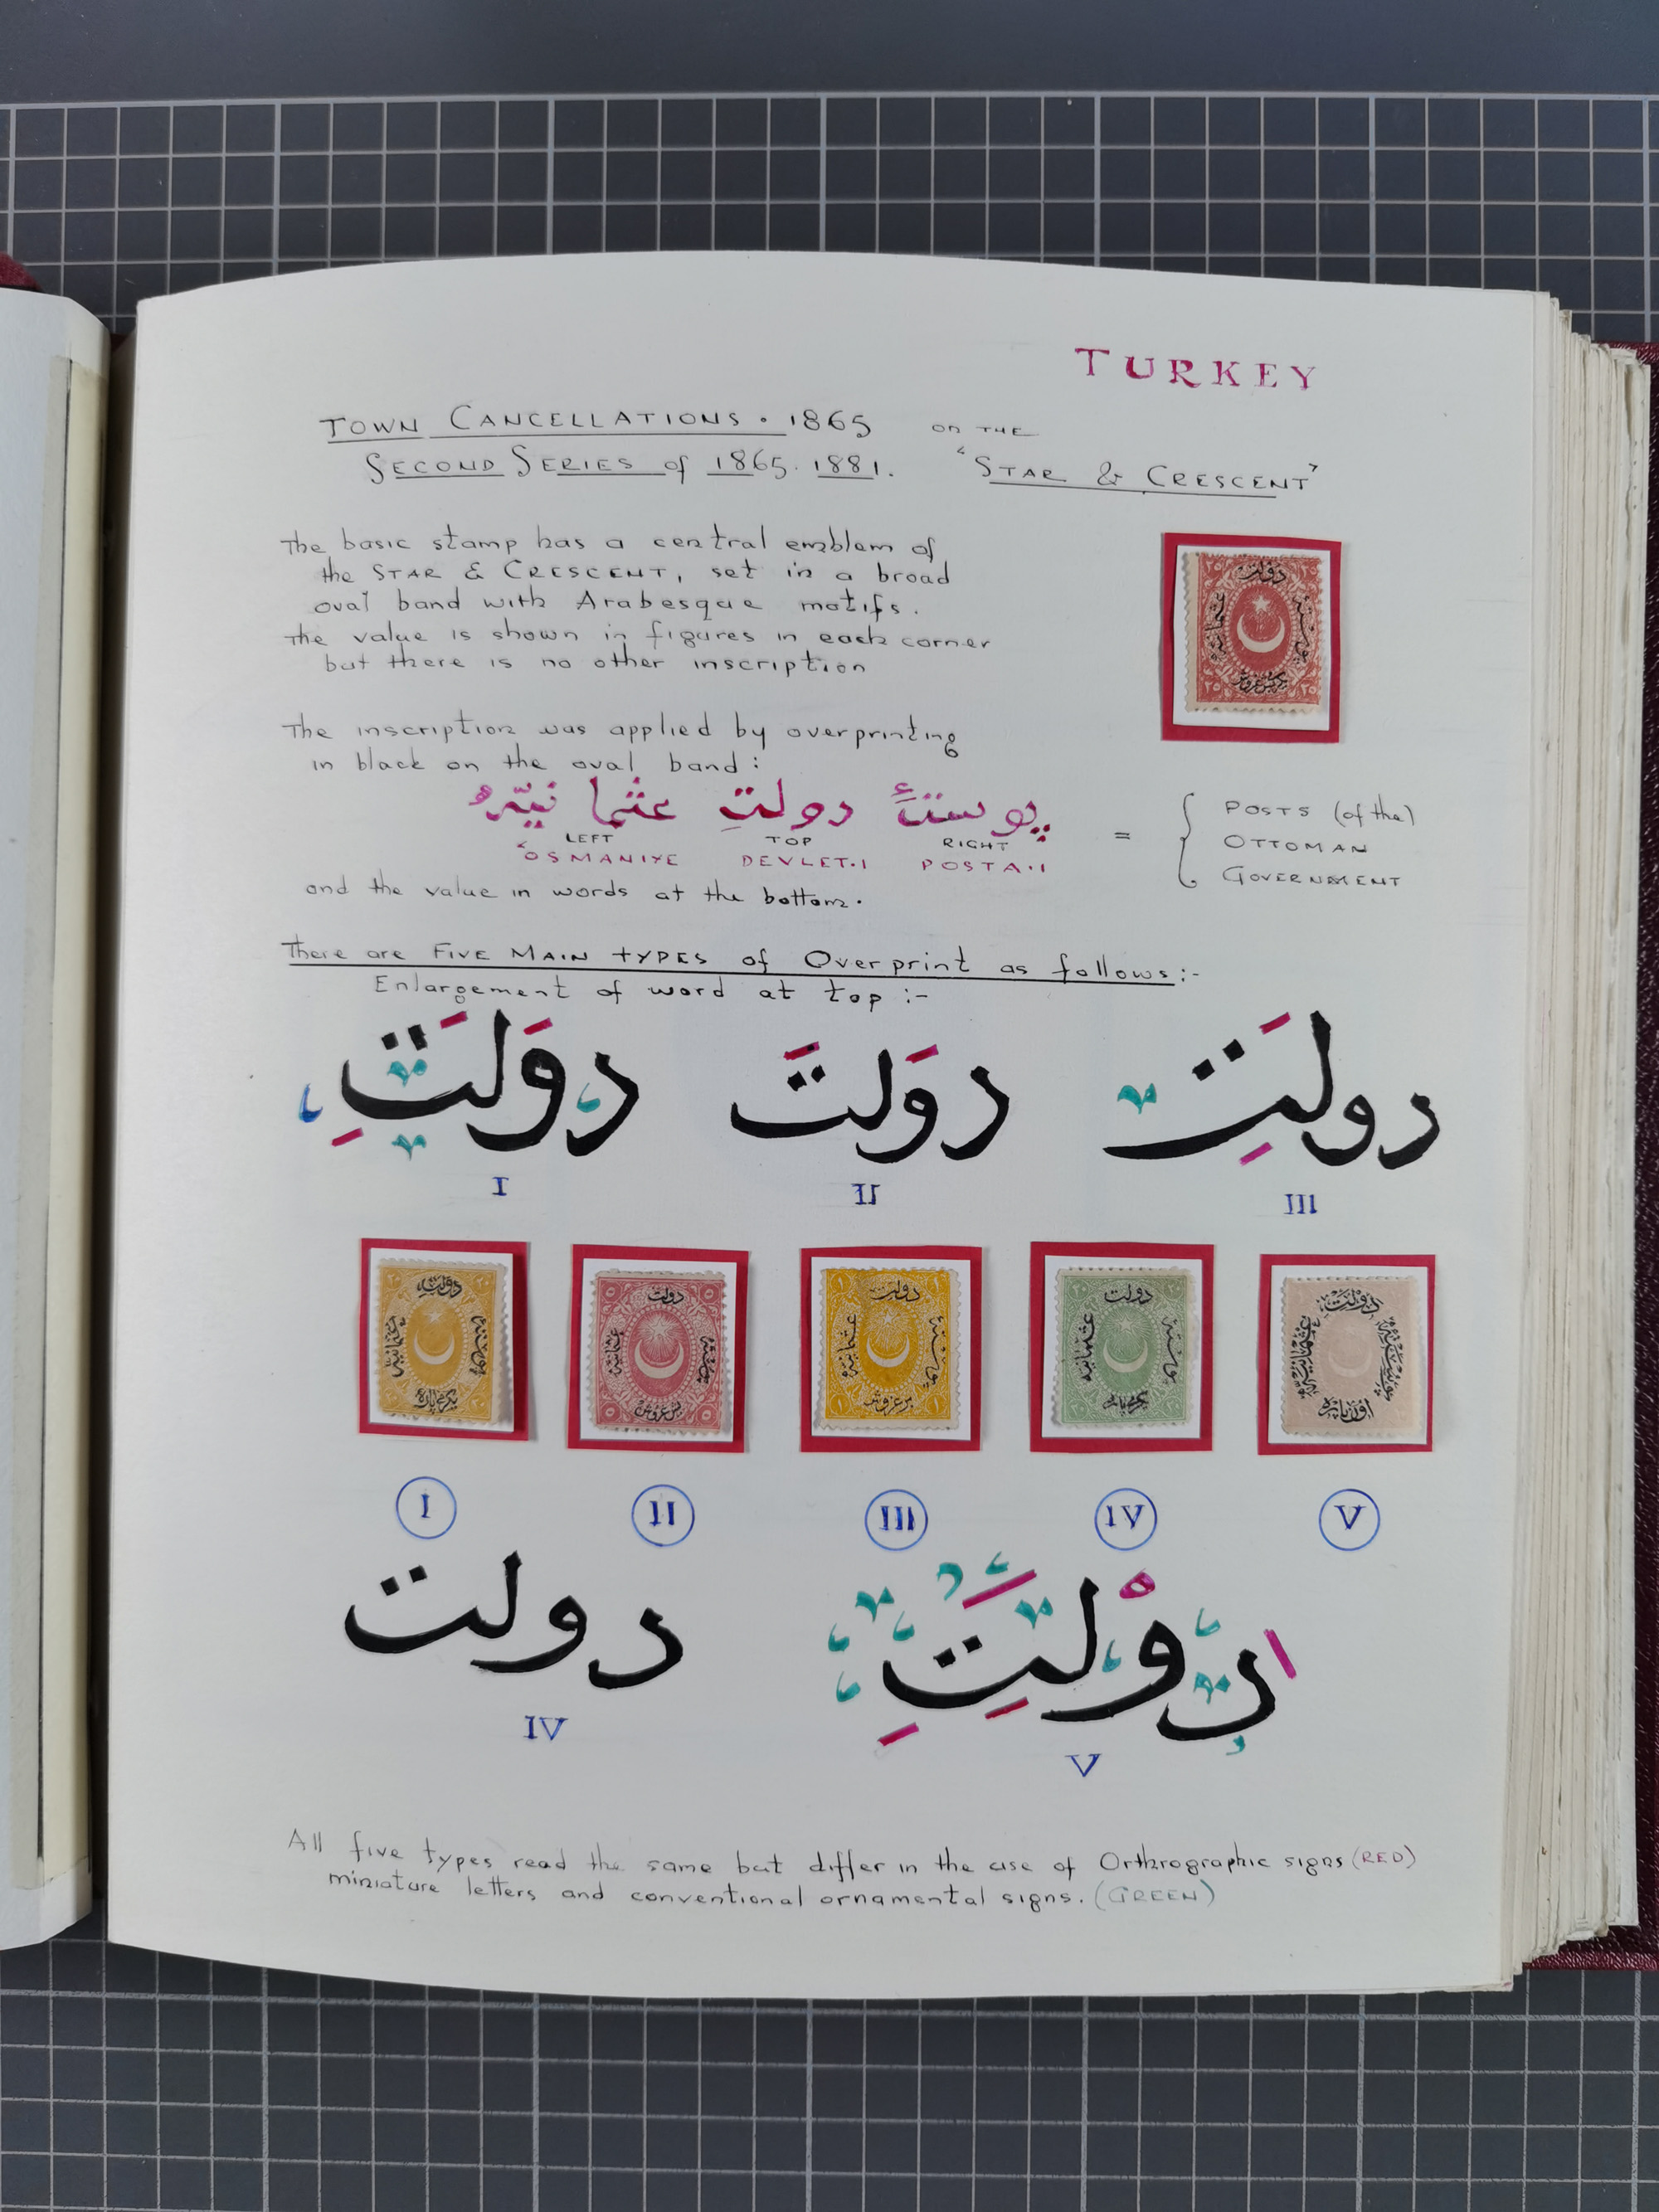 TURKEY
TOWN CANCELLATIONS. 1865 on THE
SECOND SERIES of 1865. 1881. "STAR & CRESCENT"
The basic stamp has a central emblem of
the STAR & CRESCENT, set in a broad
oval band with Arabesque motifs.
The value is shown in figures in each corner
but there is no other inscription
The inscription was applied by overprinting
in black on the oval band:
پوستۀ دولتِ عثمانیّه
LEFT TOP RIGHT
'OSMANIYE DEVLET.I POSTA.I
= { POSTS (of the)
OTTOMAN
GOVERNMENT
and the value in words at the bottom.
There are FIVE MAIN TYPES of Overprint as follows:-
Enlargement of word at top :-
دَوَلَتِ
دوَلتَ
دولَتِ
I II III
دولت
دولت
دولت
دولت
دولت
I II III IV V
دولت
دوْلَتِ
IV V
All five types read the same but differ in the use of Orthrographic signs (RED)
miniature letters and conventional ornamental signs. (GREEN)